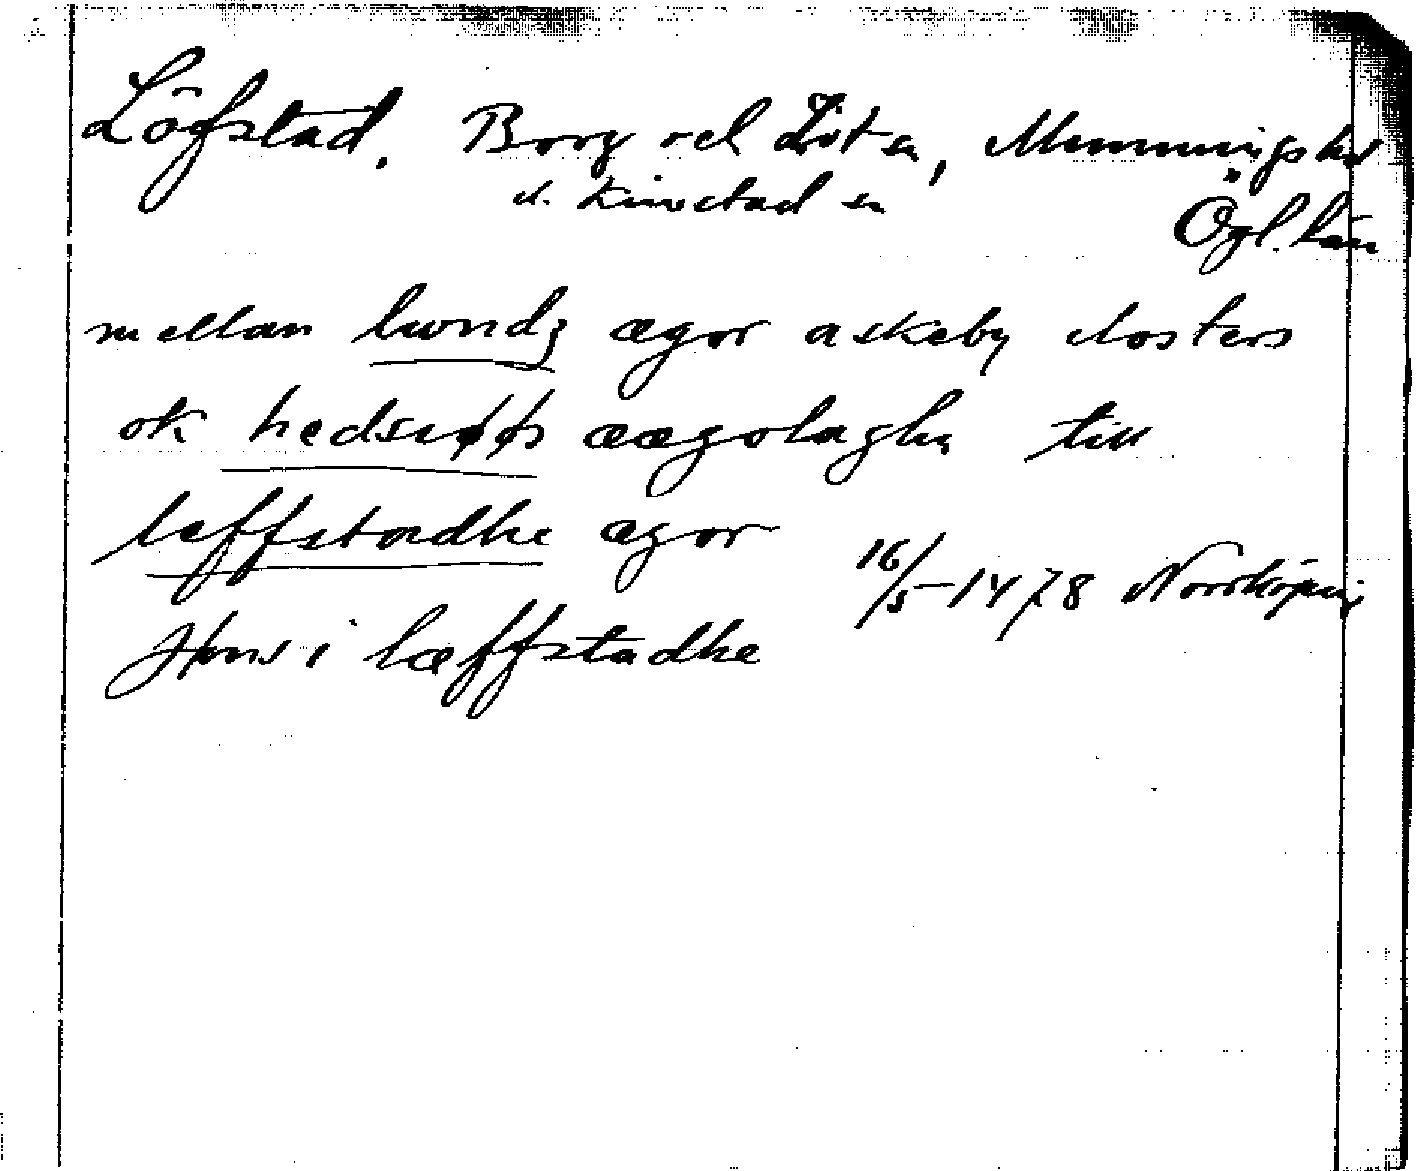 Löfstad. Borg och Löt sn, Memmingshd
o. Kimstad sn
Ögl. län
mellan lwndz ægor askeby closters
ok hedsrøøs æægolaghn till
leffstadhe ægor
16/5-1478 Norrköping
Jøns i læffstadhe